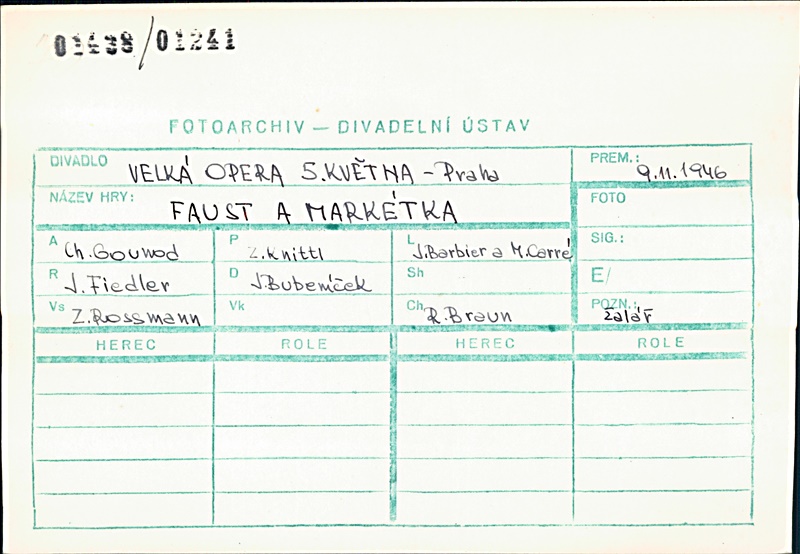 01438/01241
FOTOARCHIV – DIVADELNÍ ÚSTAV
DIVADLO VELKÁ OPERA 5. KVĚTNA – Praha PREM.: 9.11.1946
NÁZEV HRY: FAUST A MARKÉTKA FOTO
A Ch. Gounod P Z. Knittl L J. Barbier a M. Carré SIG.:
R J. Fiedler D J. Bubeníček Sh E/
Vs Z. Rossmann Vk Ch. R. Braun POZN.: žalář
HEREC ROLE HEREC ROLE